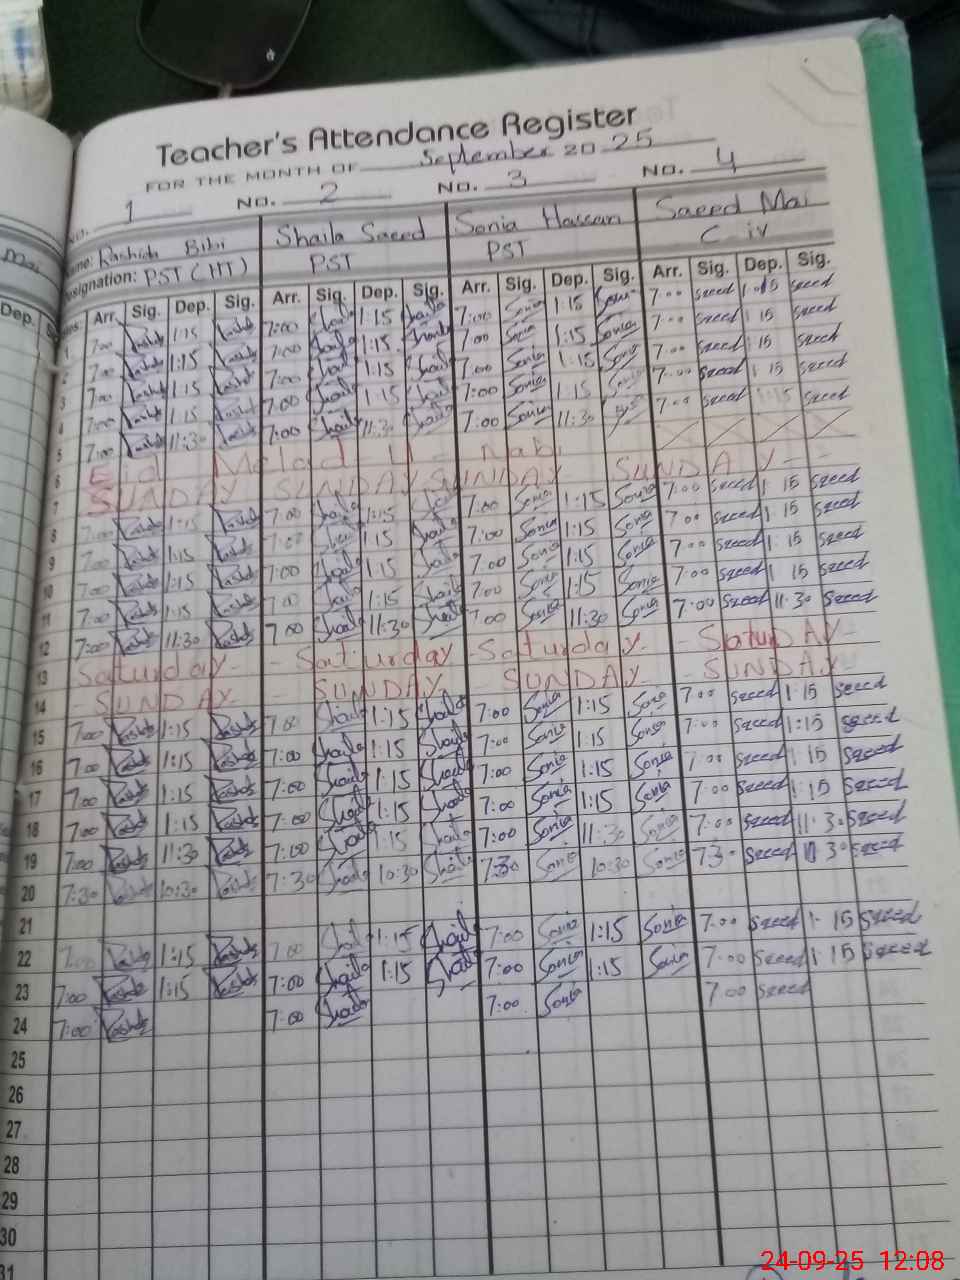 Teacher's Attendance Register
FOR THE MONTH OF September 2025
NO. 1 NO. 2 NO. 3 NO. 4
Name: Rashida Bibi Shaila Saeed Sonia Hassan Saeed Mai
Designation: PST (HT) PST PST C iv
Arr. Sig. Dep. Sig. Arr. Sig. Dep. Sig. Arr. Sig. Dep. Sig. Arr. Sig. Dep. Sig.
1 7:00 Rashda 1:15 Rashda 7:00 Shaila 1:15 Shaila 7:00 Sonia 1:15 Sonia 7:00 saeed 1:15 saeed
2 7:00 Rashda 1:15 Rashda 7:00 Shaila 1:15 Shaila 7:00 Sonia 1:15 Sonia 7:00 saeed 1:15 saeed
3 7:00 Rashda 1:15 Rashda 7:00 Shaila 1:15 Shaila 7:00 Sonia 1:15 Sonia 7:00 saeed 1:15 saeed
4 7:00 Rashda 1:15 Rashda 7:00 Shaila 1:15 Shaila 7:00 Sonia 1:15 Sonia 7:00 saeed 1:15 saeed
5 7:00 Rashda 11:30 Rashda 7:00 Shaila 11:30 Shaila 7:00 Sonia 11:30 7:00 saeed 1:15 saeed
6 Eid Melad U - Nabi
7 SUNDAY SUNDAY SUNDAY SUNDAY
8 7:00 Rashda 1:15 Rashda 7:00 Shaila 1:15 Shaila 7:00 Sonia 1:15 Sonia 7:00 saeed 1:15 saeed
9 7:00 Rashda 1:15 Rashda 7:00 Shaila 1:15 Shaila 7:00 Sonia 1:15 Sonia 7:00 saeed 1:15 saeed
10 7:00 Rashda 1:15 Rashda 7:00 Shaila 1:15 Shaila 7:00 Sonia 1:15 Sonia 7:00 saeed 1:15 saeed
11 7:00 Rashda 1:15 Rashda 7:00 Shaila 1:15 Shaila 7:00 Sonia 1:15 Sonia 7:00 saeed 1:15 saeed
12 7:00 Rashda 11:30 Rashda 7:00 Shaila 11:30 Shaila 7:00 Sonia 11:30 Sonia 7:00 saeed 11:30 saeed
13 Saturday - Saturday - Saturday - Saturday
14 SUNDAY - SUNDAY - SUNDAY - SUNDAY
15 7:00 Rashda 1:15 Rashda 7:00 Shaila 1:15 Shaila 7:00 Sonia 1:15 Sonia 7:00 saeed 1:15 saeed
16 7:00 Rashda 1:15 Rashda 7:00 Shaila 1:15 Shaila 7:00 Sonia 1:15 Sonia 7:00 saeed 1:15 saeed
17 7:00 Rashda 1:15 Rashda 7:00 Shaila 1:15 Shaila 7:00 Sonia 1:15 Sonia 7:00 saeed 1:15 saeed
18 7:00 Rashda 1:15 Rashda 7:00 Shaila 1:15 Shaila 7:00 Sonia 1:15 Sonia 7:00 saeed 1:15 saeed
19 7:00 Rashda 11:30 Rashda 7:00 Shaila 1:15 Shaila 7:00 Sonia 11:30 Sonia 7:00 saeed 11:30 saeed
20 7:30 Rashda 10:30 Rashda 7:30 Shaila 10:30 Shaila 7:30 Sonia 10:30 Sonia 7:30 saeed 10:30 saeed
21
22 7:00 Rashda 1:15 Rashda 7:00 Shaila 1:15 Shaila 7:00 Sonia 1:15 Sonia 7:00 saeed 1:15 saeed
23 7:00 Rashda 1:15 Rashda 7:00 Shaila 1:15 Shaila 7:00 Sonia 1:15 Sonia 7:00 saeed 1:15 saeed
24 7:00 Rashda 7:00 Shaila 7:00 Sonia 7:00 saeed
25
26
27
28
29
30
31
24-09-25 12:08